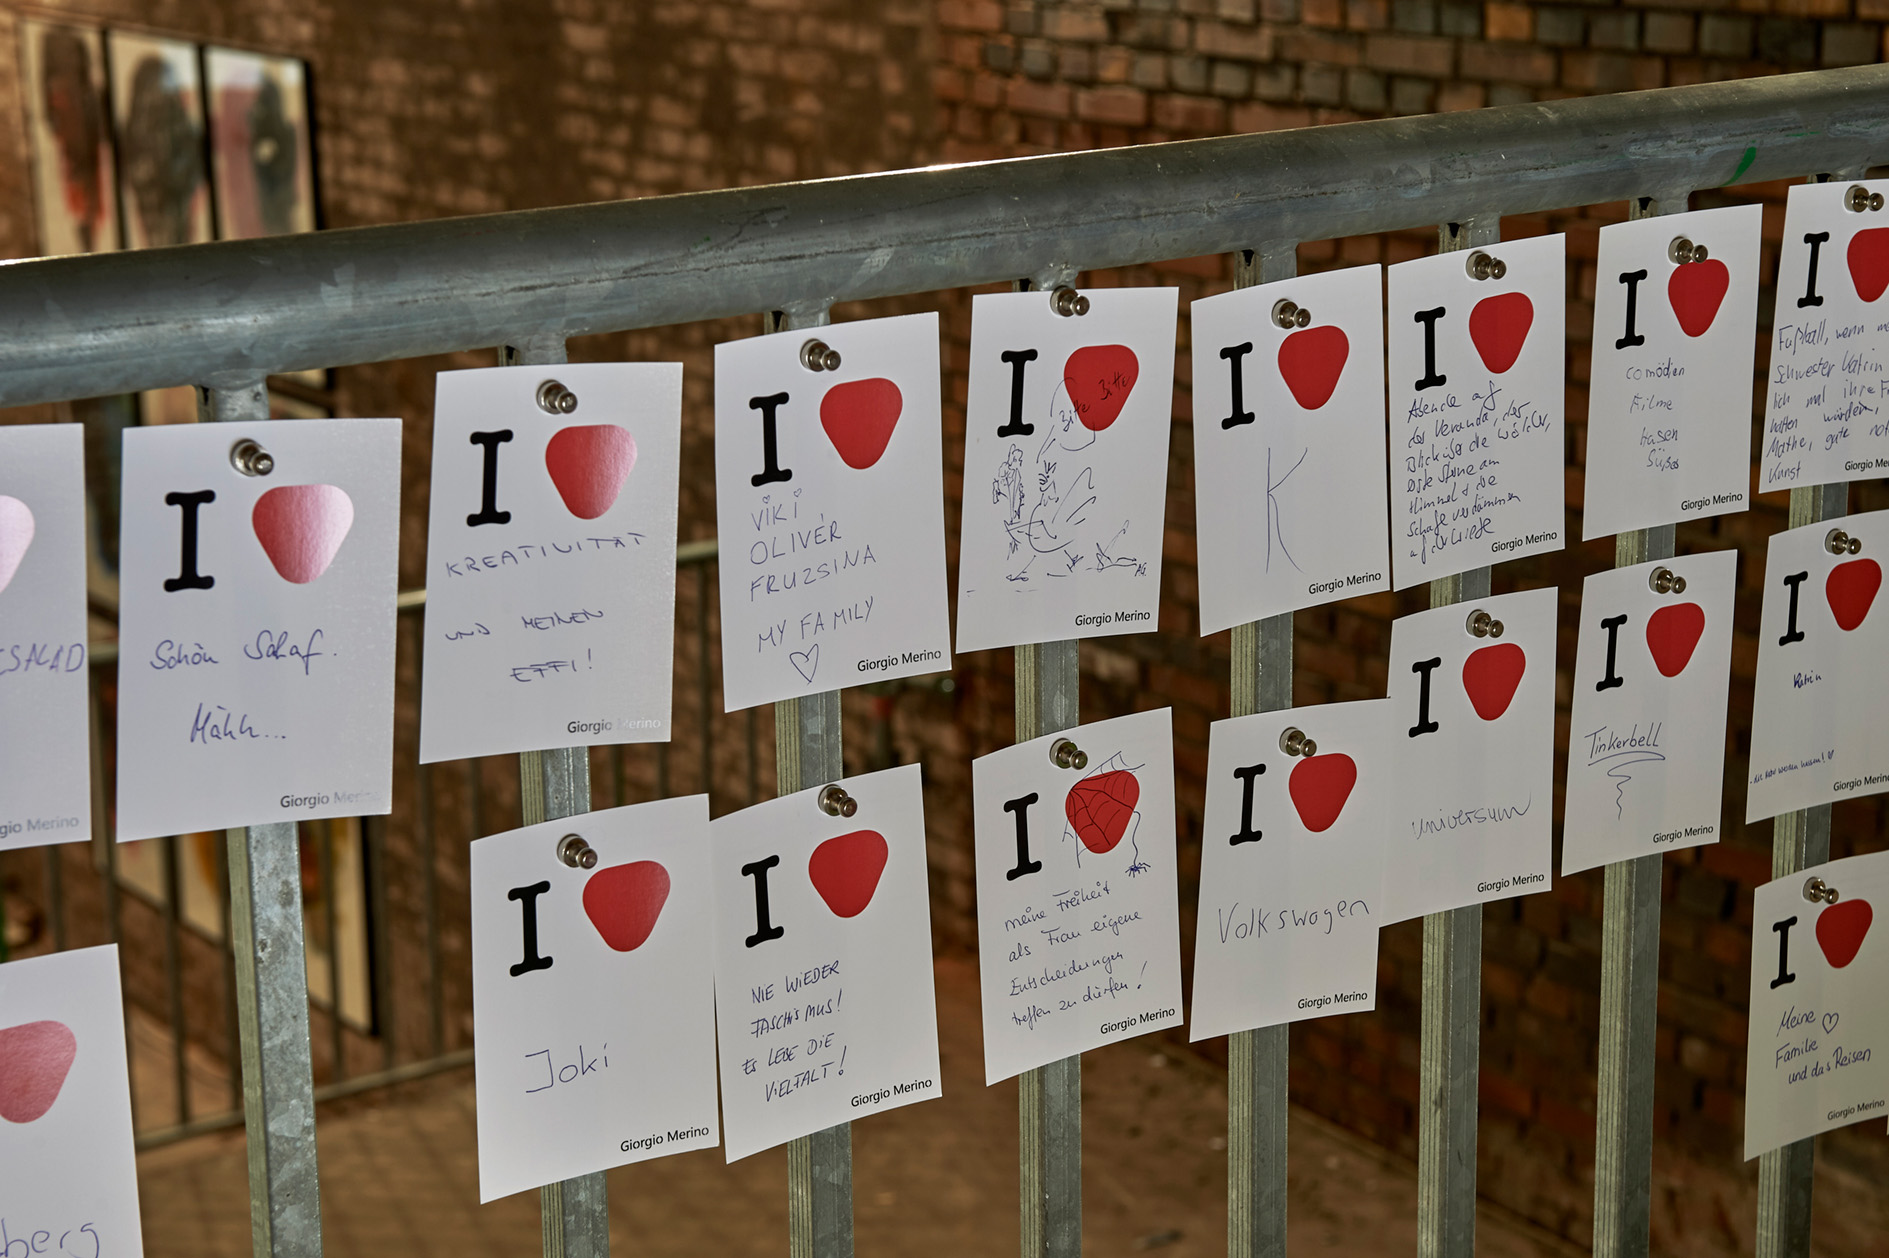 SALAD
gio Merino
I
Schön Schaf.
Mähh...
Giorgio Merino
I
KREATIVITÄT
UND MEINEN
EFFI!
Giorgio Merino
I
VIKI,
OLIVÉR
FRUZSINA
MY FAMILY
Giorgio Merino
I
Bitte Bitte
AG
Giorgio Merino
I
K
Giorgio Merino
I
Abende auf
der Veranda, der
Blick über die Wälder,
die Sterne am
Himmel & die
Schafe
auf der Wiese
Giorgio Merino
I
Comödien
Filme
Hasen
Süßes
Giorgio Merino
I
Fußball, wenn
Schwester Katrin
ich mal ihre
hätten würden,
Mathe, gute
Kunst
Giorgio Mer
berg
I
Joki
Giorgio Merino
I
NIE WIEDER
FASCHISMUS!
ES LEBE DIE
VIELFALT!
Giorgio Merino
I
meine Freiheit
als Frau eigene
Entscheidungen
treffen zu dürfen!
Giorgio Merino
I
Volkswagen
Giorgio Merino
I
Universum
Giorgio Merino
I
Tinkerbell
Giorgio Merino
I
Katrin
Giorgio Merino
I
Meine
Familie
und das Reisen
Giorgio Merino